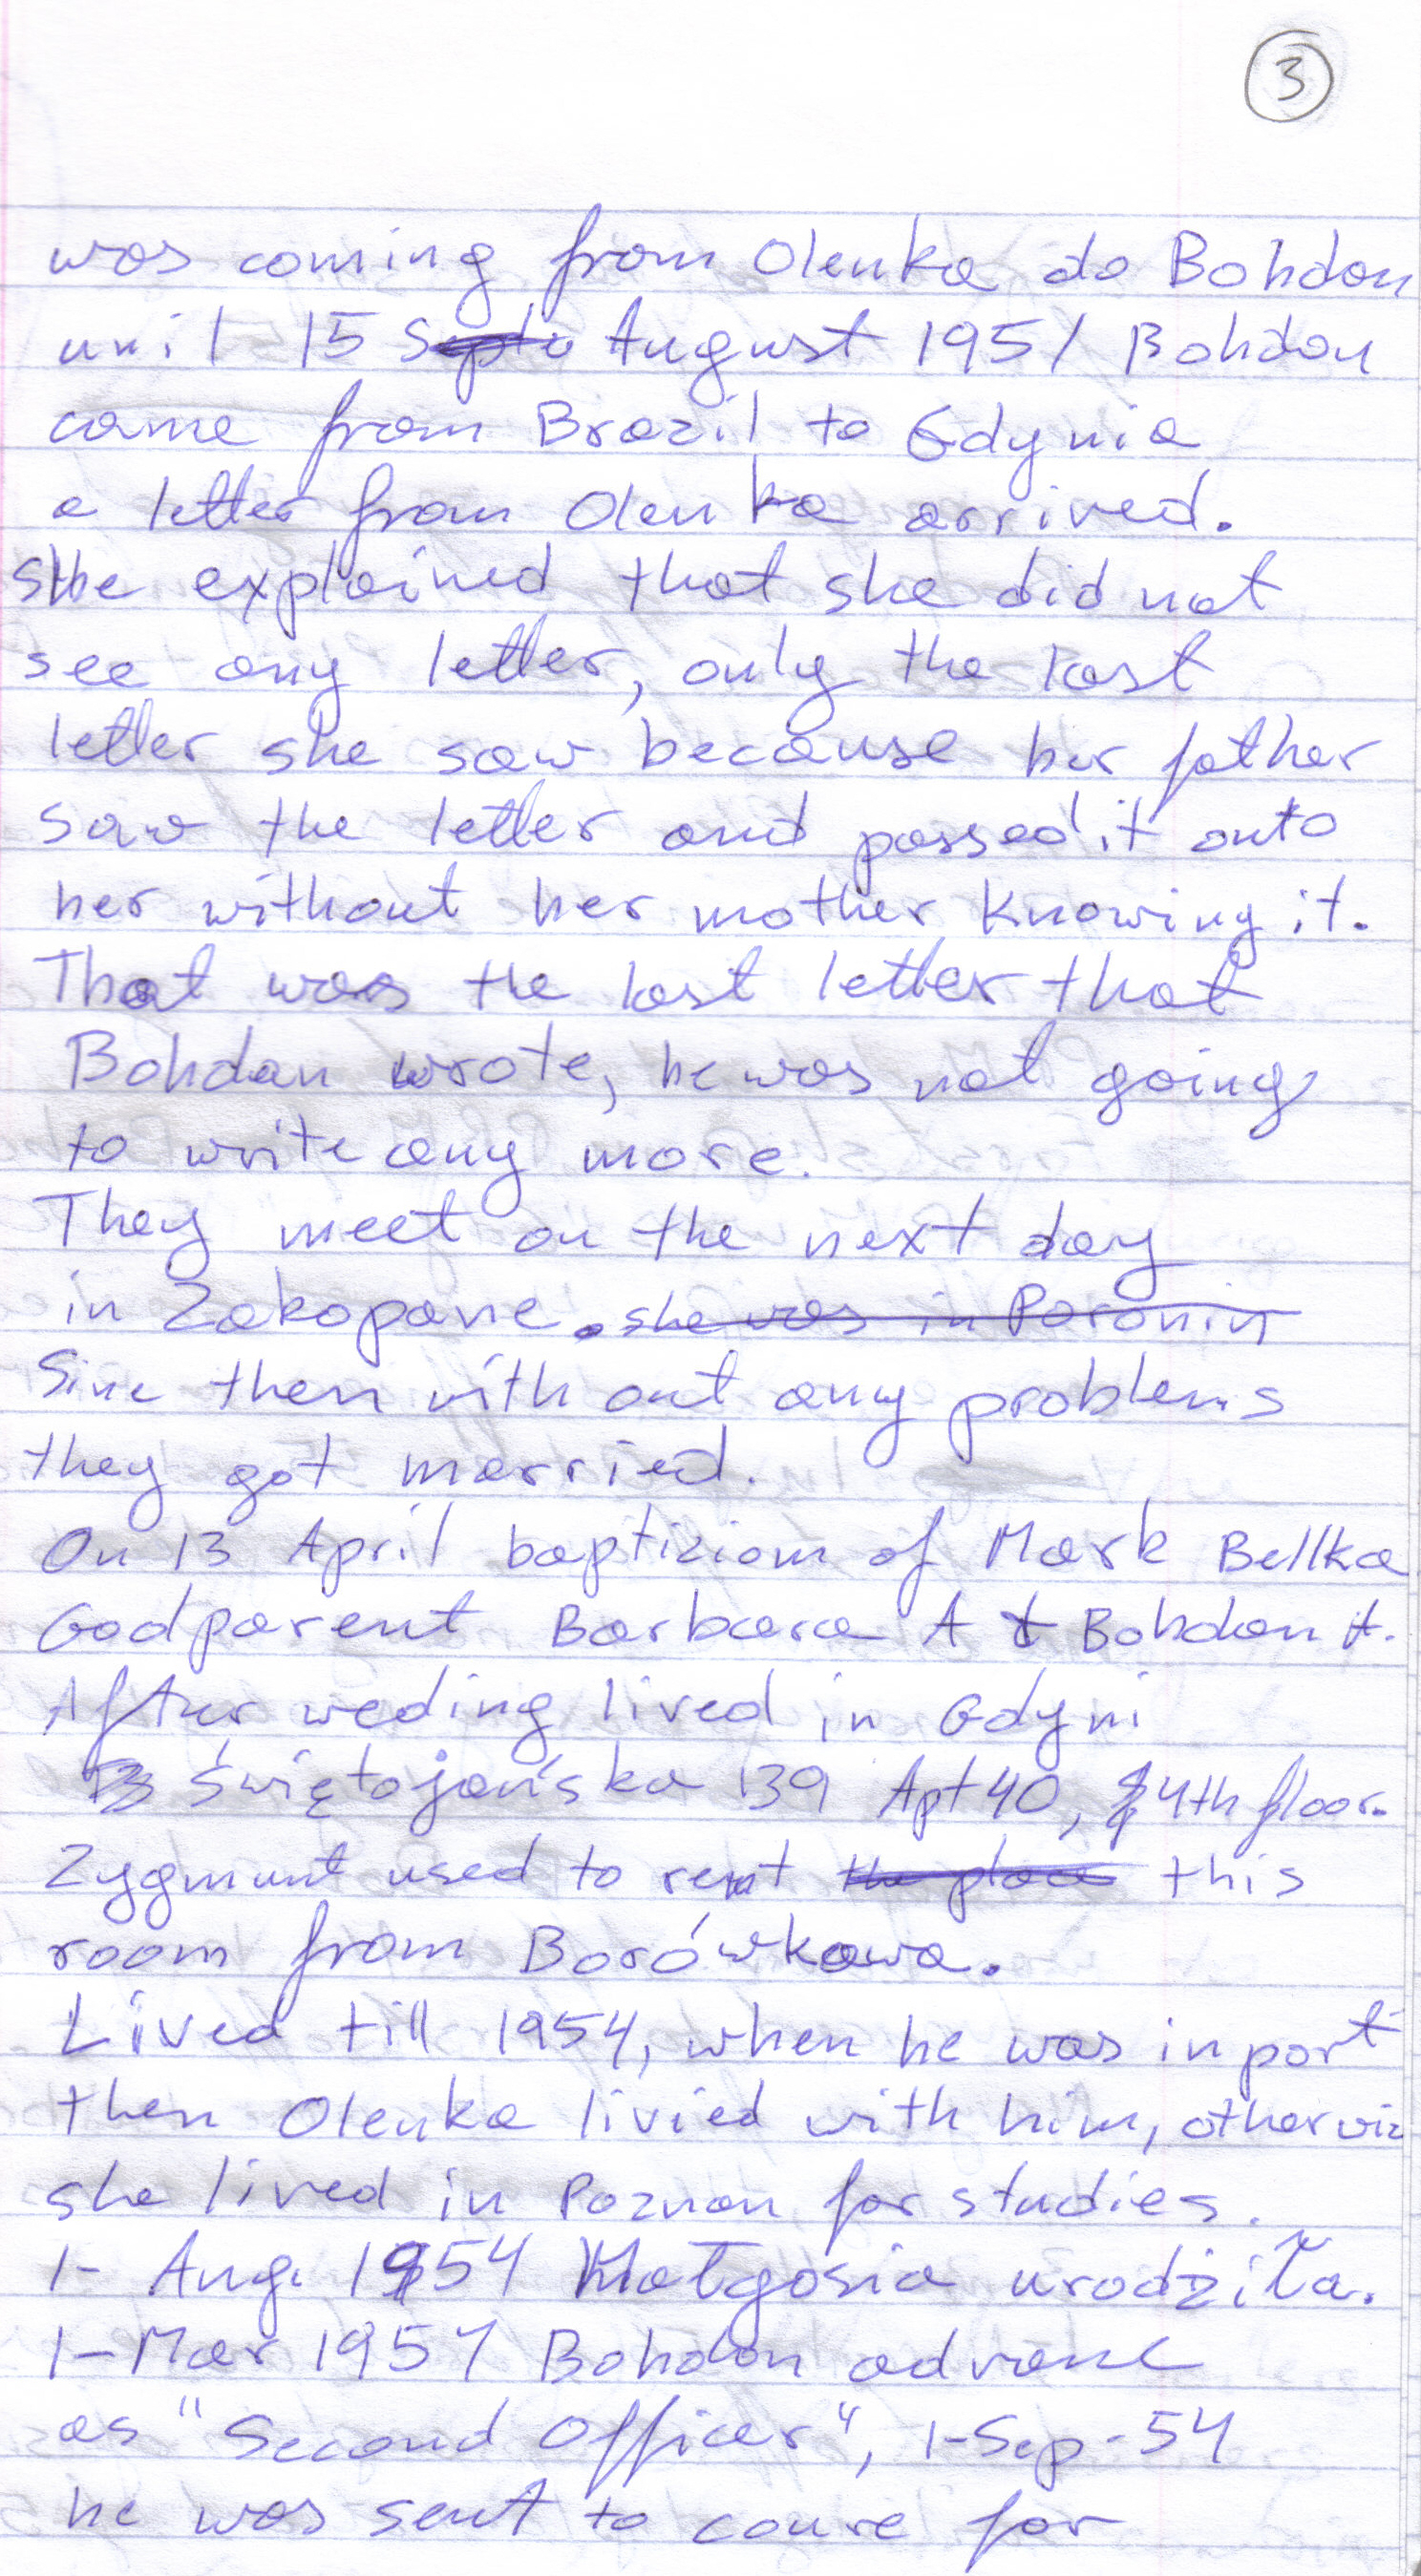 3
was coming from Olenka do Bohdan
unil 15 Septe August 1951 Bohdan
came from Brazil to Gdynia
a letter from Olenka arrived.
She explained that she did not
see any letter, only the last
letter she saw because her father
saw the letter and passed it onto
her without her mother knowing it.
That was the last letter that
Bohdan wrote, he was not going
to write any more.
They meet on the next day
in Zakopane. she was in Poronin
Sine then without any problems
they got married.
On 13 April baptiziom of Mark Bellka
Godparent Barbara A & Bohdan A.
After weding lived in Gdyni
Świętojańska 139 Apt 40, 4th floor.
Zygmunt used to rent the place this
room from Borówkowa.
Lived till 1954, when he was in port
then Olenka livied with him, otherwiz
she lived in Poznan for studies.
1- Aug. 1954 Małgosia urodziła.
1-Mar 1957 Bohdan advanc
as "Second Officer", 1-Sep-54
he was sent to coure for